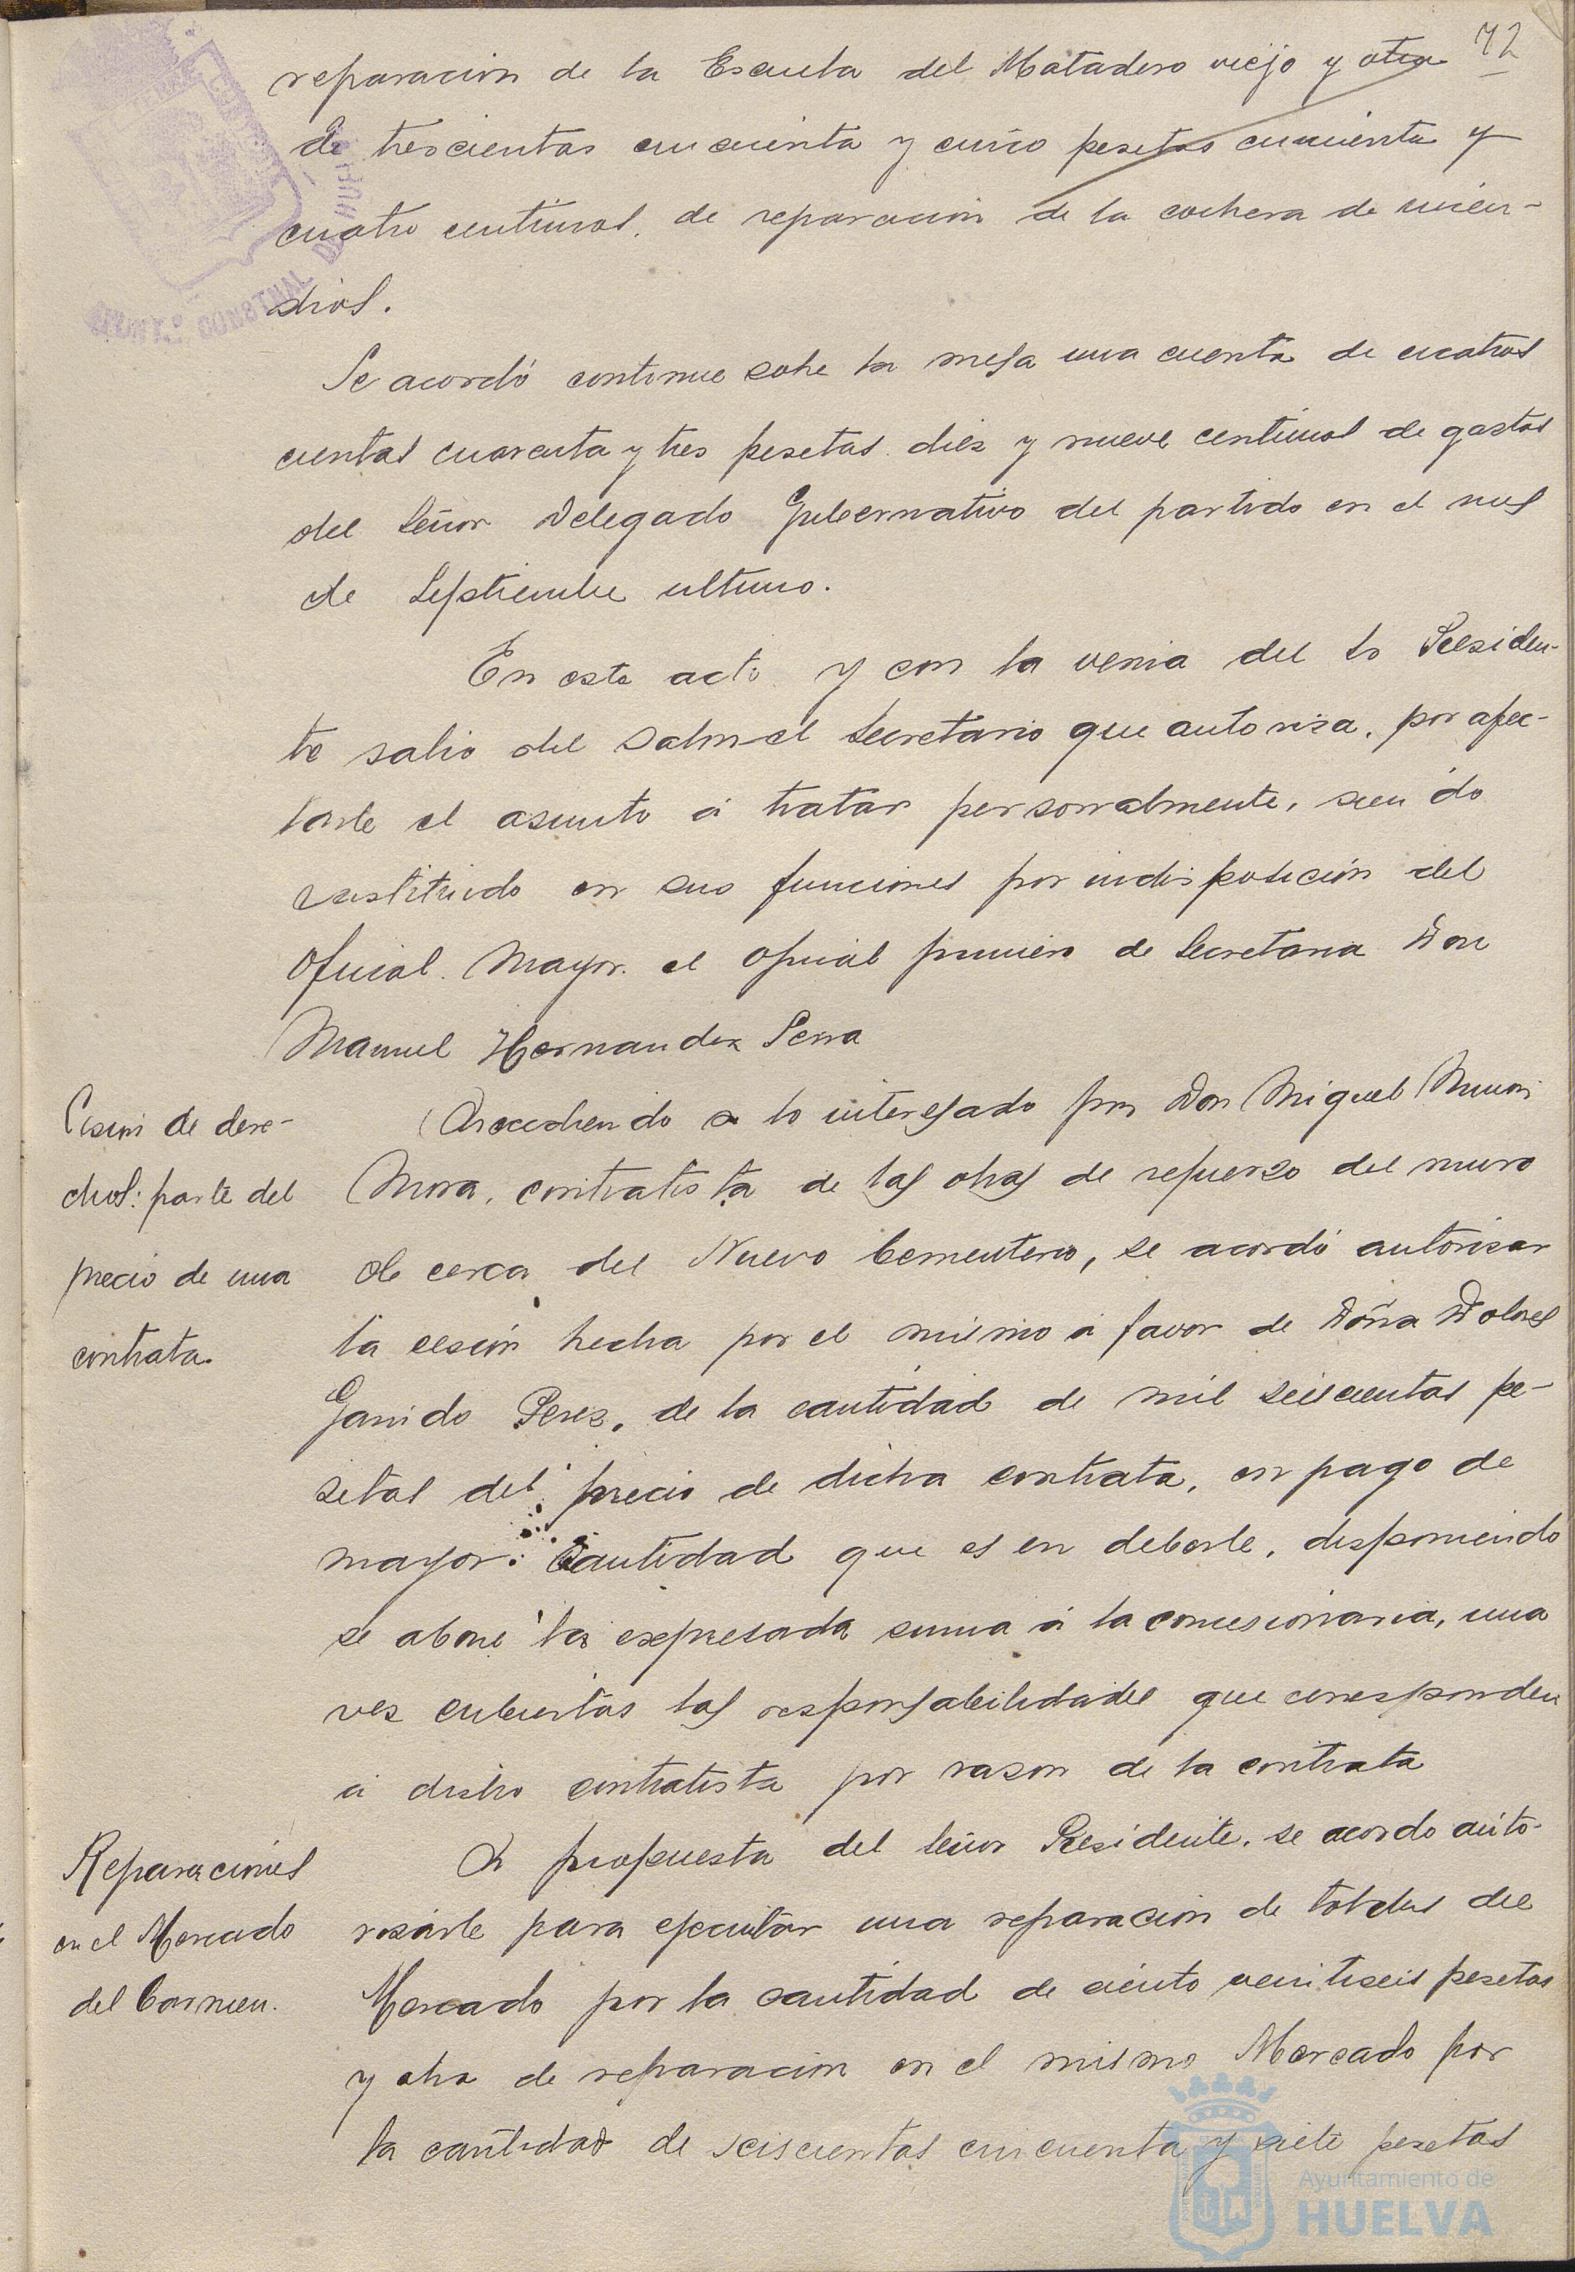 72
reparacion de la Escuela del Matadero viejo y otra
de trescientas cincuenta y cinco pesetas cincuenta y
cuatro centimos, de reparacion de la cochera de incen-
dios.
Se acordó continue sobre la mesa una cuenta de cuatros
cientas cuarenta y tres pesetas diez y nueve centimos de gastos
del Señor Delegado Gubernativo del partido en el mes
de Septiembre ultimo.
En este acto y con la venia del Sr Presiden-
te salio del Salon el Secretario que autoriza, por afec-
tarle el asunto á tratar personalmente, siendo
sustituido en sus funciones por indisposición del
Oficial Mayor el oficial primero de Secretaria Don
Manuel Hernandez Serra
Cesion de dere-
chos: parte del
precio de una
contrata.
Accediendo a lo interesado por Don Miguel
Mora, contratista de las obras de refuerzo del muro
de cerca del Nuevo Cementerio, se acordó autorizar
la cesión hecha por el mismo á favor de Doña Dolores
Garrido Perez, de la cantidad de mil seiscientas pe-
setas del precio de dicha contrata, en pago de
mayor cantidad que es en deberle, disponiendo
se abone la expresada suma á la concesionaria, una
vez cubiertas las responsabilidades que corresponden
á dicho contratista por razon de la contrata
Reparaciones
en el Mercado
del Carmen.
A propuesta del Señor Presidente, se acordo auto-
rizarle para ejecutar una reparacion de toldos del
Mercado por la cantidad de ciento veintiseis pesetas
y otra de reparacion en el mismo Mercado por
la cantidad de seiscientas cincuenta y siete pesetas
Ayuntamiento de
HUELVA